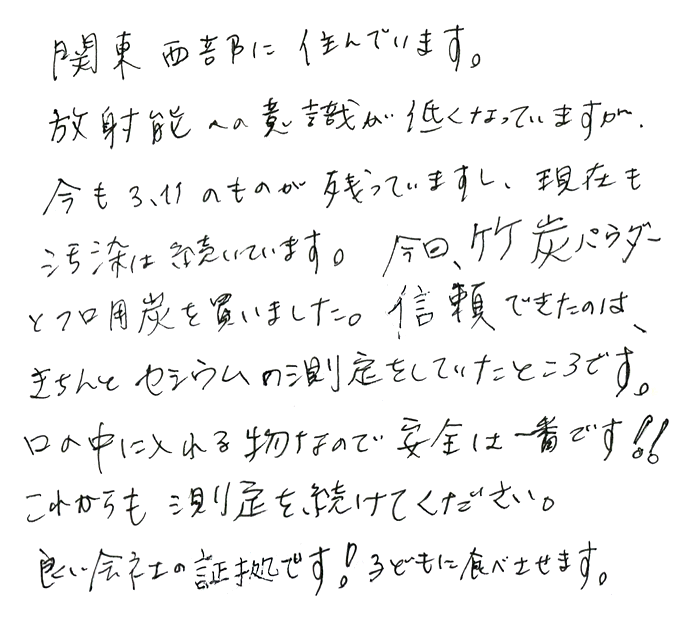 関東西部に住んでいます。
放射能への意識が低くなっていますが、
今も3、11のものが残っていますし、現在も
汚染は続いています。今回、竹炭パウダー
とフロ用炭を買いました。信頼できたのは、
きちんとセシウムの測定をしていたところです。
口の中に入れる物なので安全は一番です!!
これからも測定を続けてください。
良い会社の証拠です!子どもに食べさせます。